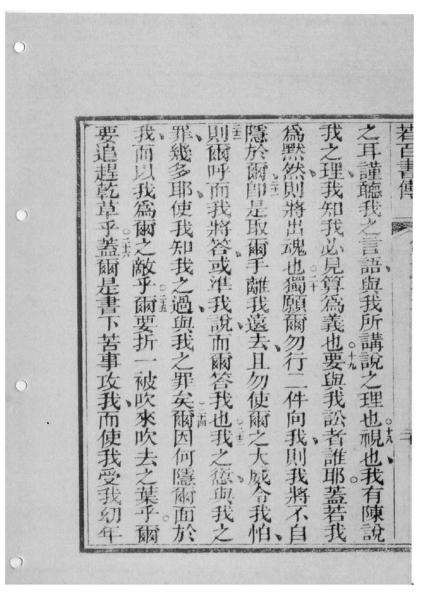 若百書傳
之耳謹聽我之言語與我所講說之理也十八視也我有陳說
我之理我知我必見算爲義也十九要與我訟者誰耶蓋若我
爲默然則將出魂也二十獨願爾勿行二件向我則我將不自
隱於爾二一即是取爾手離我遠去且勿使爾之大威令我怕
二二則爾呼而我將答或準我說而爾答我也二三我之愆與我之
罪幾多耶使我知我之過與我之罪矣二四爾因何隱爾面於
我而以我爲爾之敵乎二五爾要折一被吹來吹去之葉乎爾
要追趕乾草乎二六蓋爾是書下苦事攻我而使我受我幼年